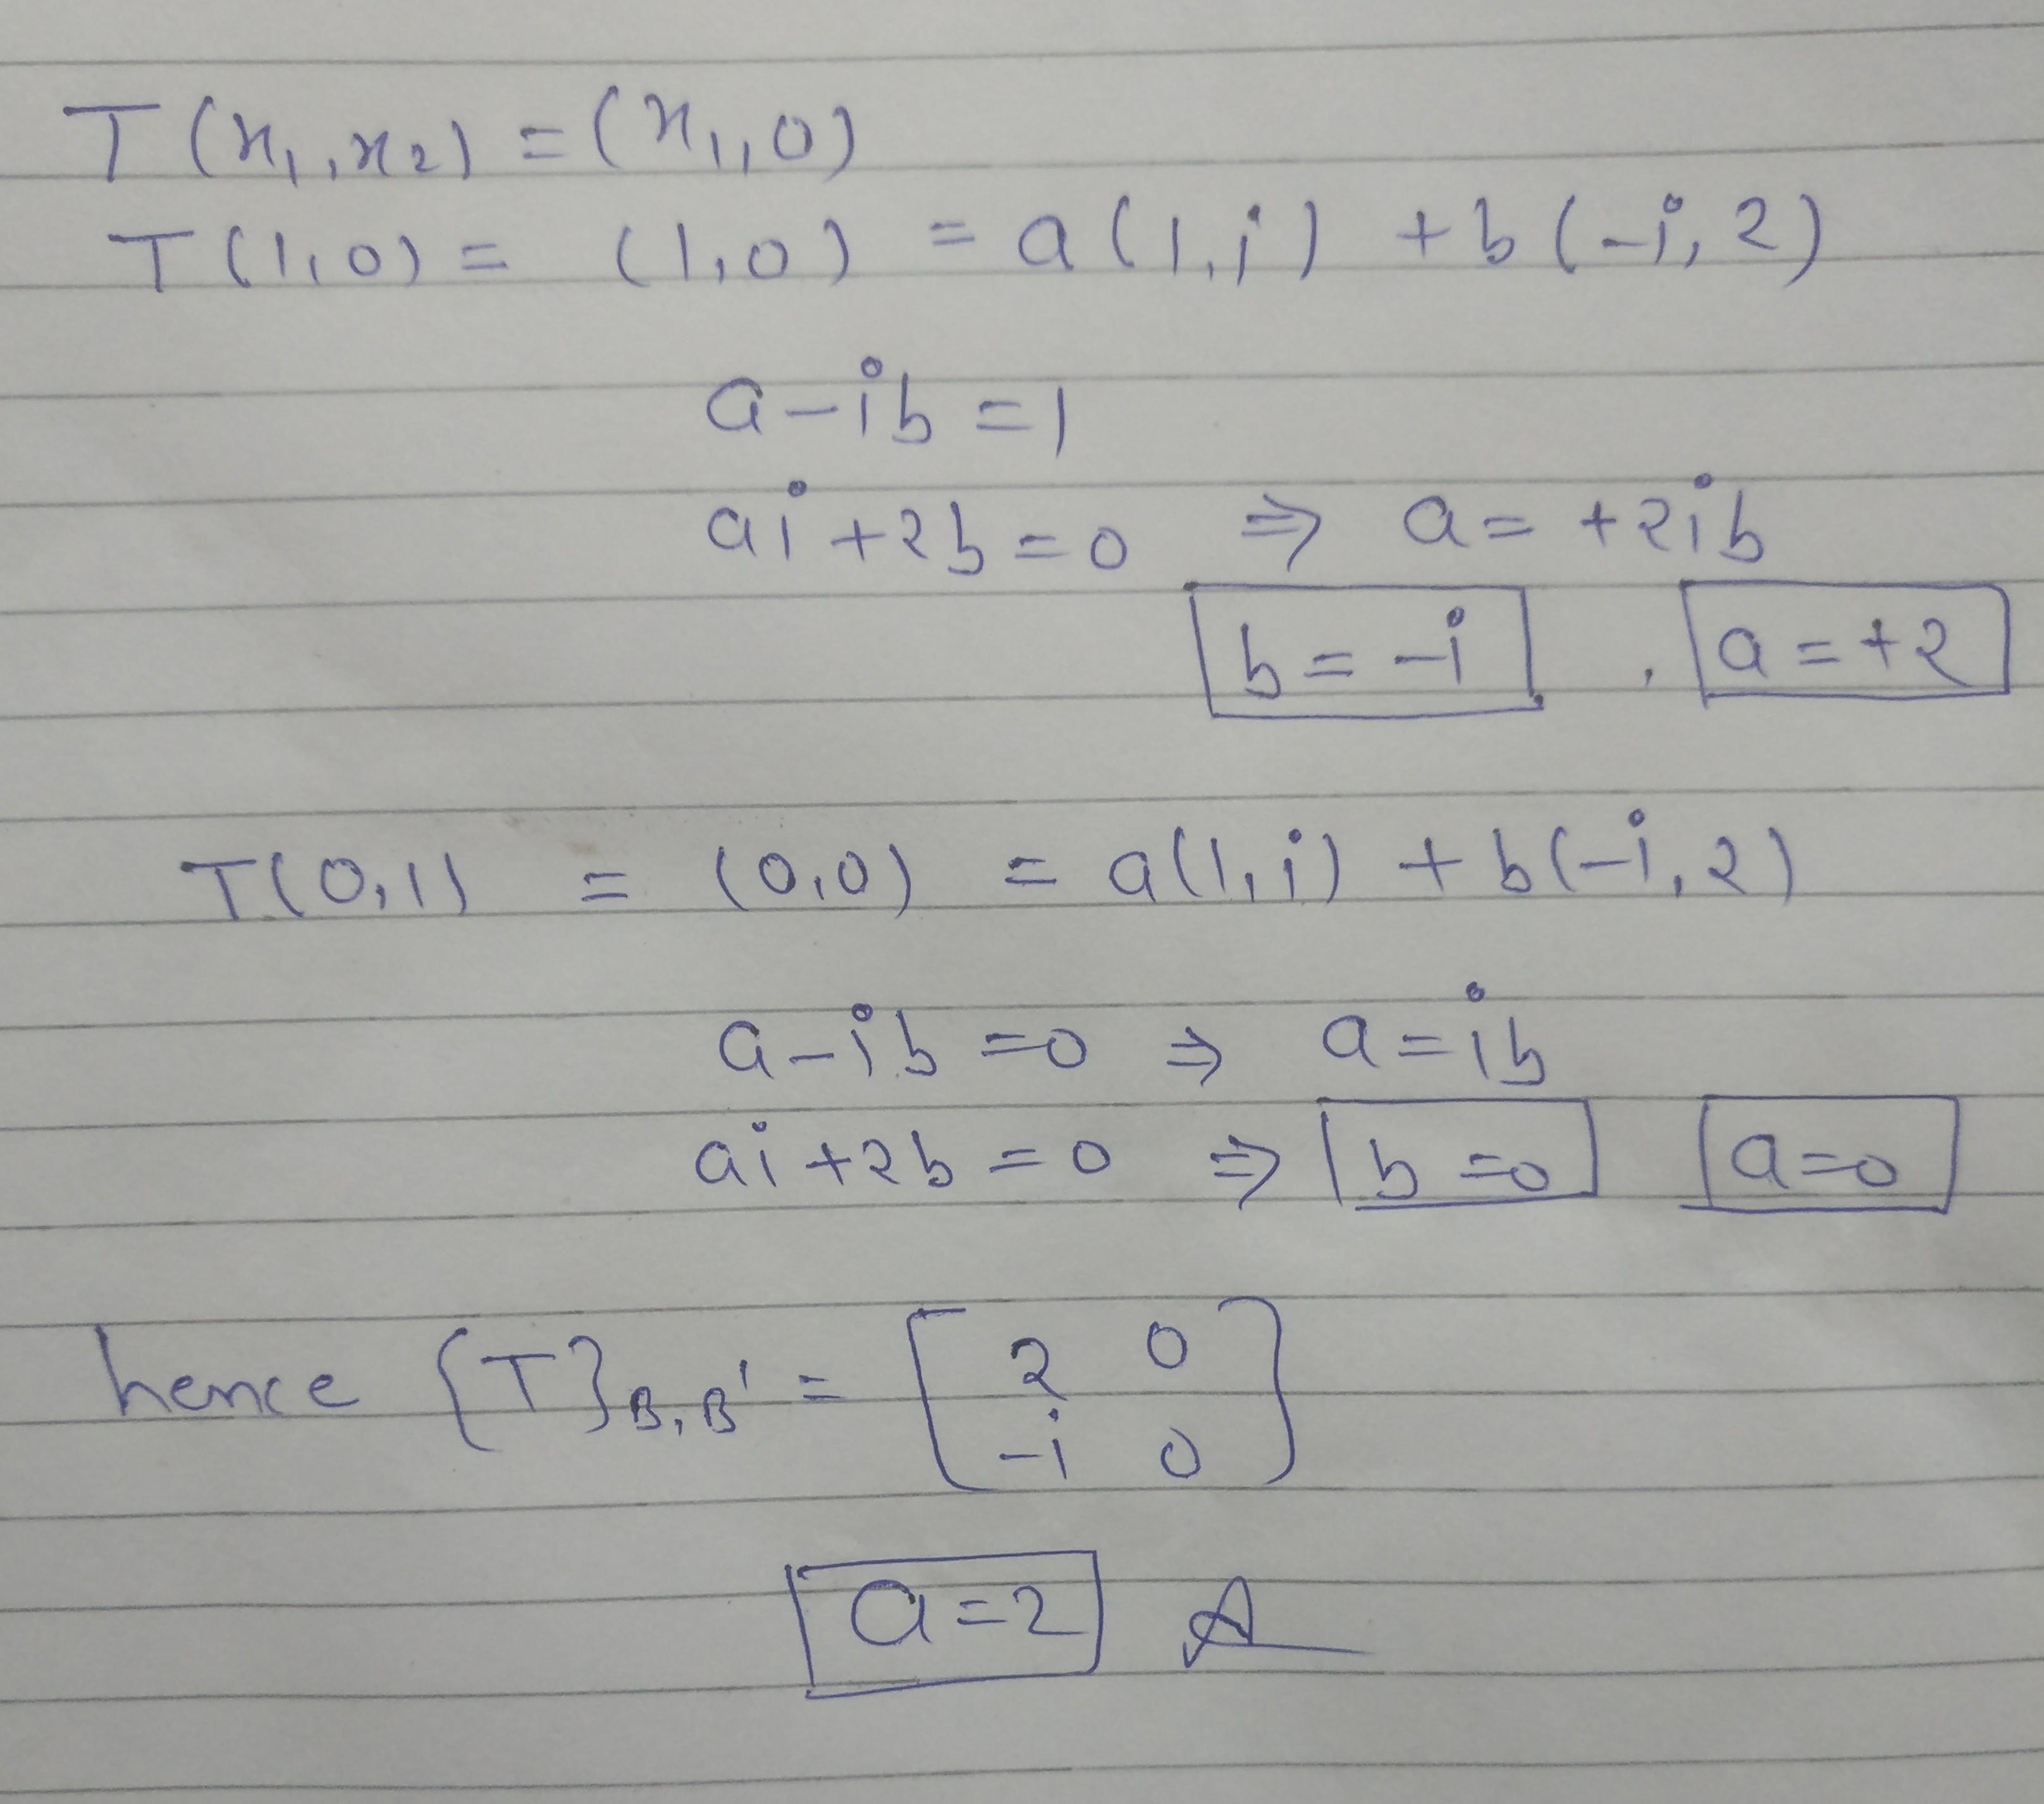 T(x₁,x₂) = (x₁,0)
T(1,0) = (1,0) = a(1,i) + b(-i,2)
a-ib=1
ai+2b=0 ⇒ a=+2ib
b=-i , a=+2
T(0,1) = (0,0) = a(1,i) + b(-i,2)
a-ib=0 ⇒ a=ib
ai+2b=0 ⇒ b=0 a=0
hence {T}B,B' = [2 0
-i 0]
a=2